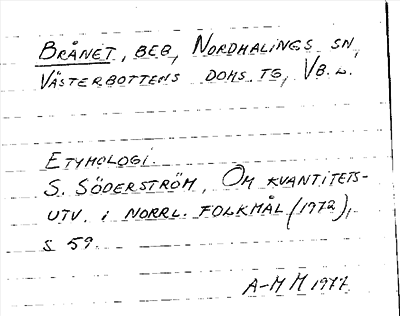 BRÅNET, BEB, NORDMALINGS SN,
VÄSTERBOTTENS DOMS. TG, VB. L.
ETYMOLOGI.
S. SÖDERSTRÖM, OM KVANTITETS-
UTV. I NORRL. FOLKMÅL (1972),
S 59.
A-M M 1977